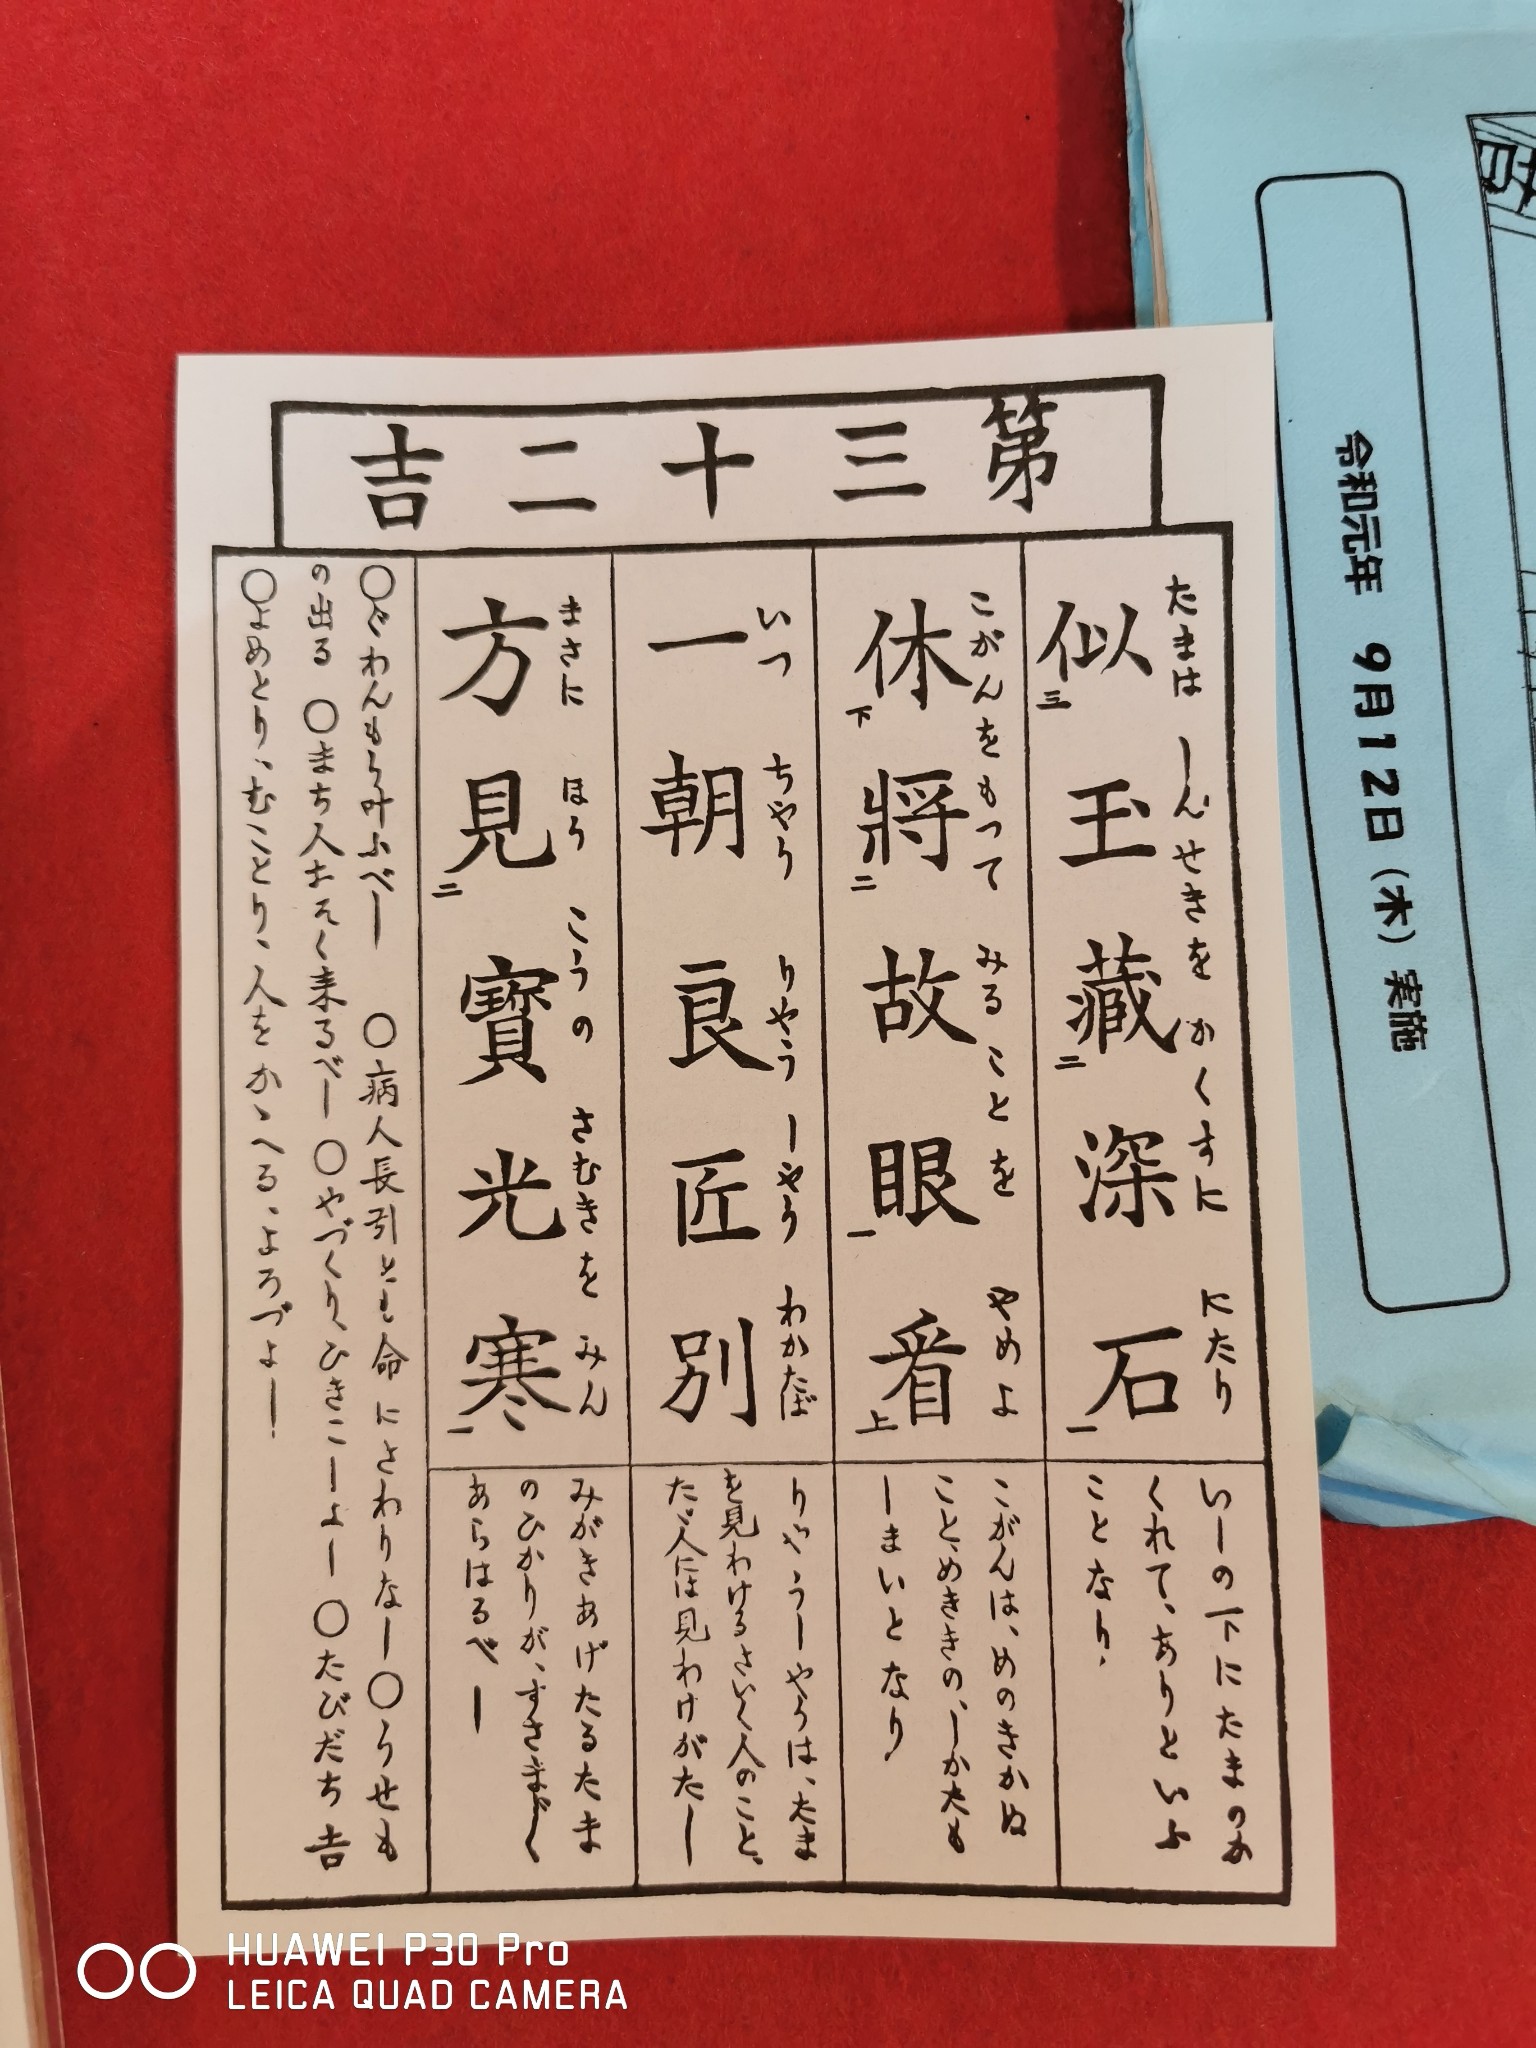 第三十二吉
たまは しんせきを かくすに にたり
似三玉藏二深石一
いしの下にたまのか
くれて、ありといふ
ことなり、
こがんをもつて みることを やめよ
休下將二故眼一看上
こがんは、めのきかぬ
こと、めききの、しか大も
しまいとなり、
いつ ちやう りやう しやう わかたば
一朝良匠別
りやうしやうは、たま
を見わけるさいく人のこと、
たゞ人には見わけがたし
まさに ほう こうの さむきを みん
方見二寳光寒一
みがきあげたるたま
のひかりが、すさまじく
あらはるべし
〇ぐわんもう叶ふべし 〇病人長引とも命にさわりなし〇うせも
の出る 〇まち人おそく来るべし 〇やづくり、ひきこしよし 〇たびだち吉
〇よめとり、むことり、人をかゝへる、よろづよし
令和元年 9月12日(木)実施
HUAWEI P30 Pro
LEICA QUAD CAMERA